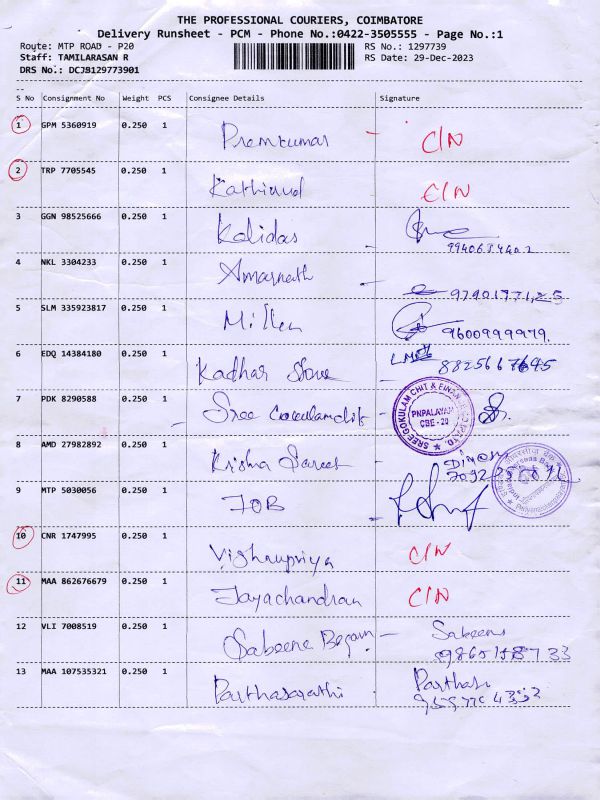 THE PROFESSIONAL COURIERS, COIMBATORE
Delivery Runsheet - PCM - Phone No.:0422-3505555 - Page No.:1
Route: MTP ROAD - P20 RS No.: 1297739
Staff: TAMILARASAN R RS Date: 29-Dec-2023
DRS No.: DCJB129773901
S No Consignment No Weight PCS Consignee Details Signature
1 GPM 5360919 0.250 1 Premkumar - C/N
2 TRP 7705545 0.250 1 C/N
3 GGN 98525666 0.250 1 Kalidas
4 NKL 3304233 0.250 1 Amarnath
5 SLM 335923817 0.250 1 Millen 9600999979.
6 EDQ 14384180 0.250 1 Kadhar Store
7 PDK 8290588 0.250 1 Sree
SREE GOKULAM CHIT & FINANCE
PNPALAYAM
CBE - 20
8 AMD 27982892 0.250 1
9 MTP 5030056 0.250 1 IOB
10 CNR 1747995 0.250 1 Vishnupriya C/N
11 MAA 862676679 0.250 1 Jayachandran C/N
12 VLI 7008519 0.250 1 Sabeena Begam - Sabeena
13 MAA 107535321 0.250 1 Parthasarathi